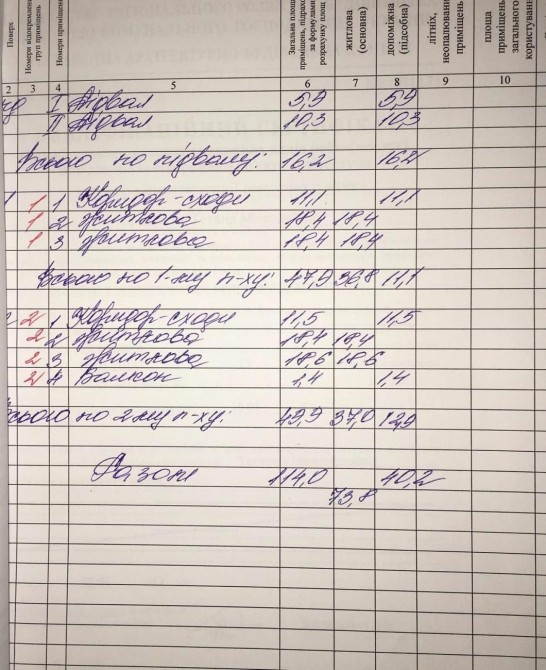 Поверх
Номери відокремлен
груп приміщень
Номери приміщень
Загальна площ
приміщень, підрахо
за формулами
розрахунку площ
житлова
(основна)
допоміжна
(підсобна)
літніх,
неопалювани
приміщень
площа
приміщень
загального
користуван
2 3 4 5 6 7 8 9 10
I Підвал 5,9 5,9
II Підвал 10,3 10,3
Всього по підвалу: 16,2 16,2
1 1 1 Коридор-сходи 11,1 11,1
1 2 Житлова 18,4 18,4
1 3 Житлова 18,4 18,4
Всього по 1-му п-ху: 47,9 36,8 11,1
2 2 1 Коридор-сходи 11,5 11,5
2 2 Житлова 18,4 18,4
2 3 Житлова 18,6 18,6
2 4 Балкон 1,4 1,4
Всього по 2му п-ху: 49,9 37,0 12,9
Разом 114,0 40,2
73,8